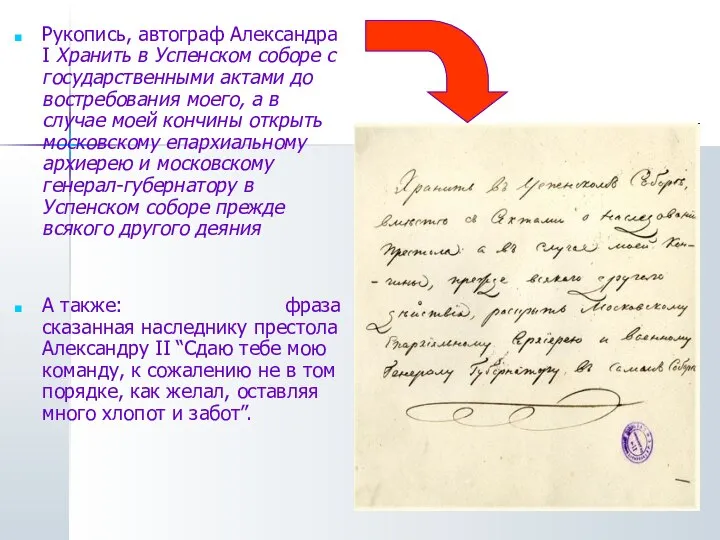 Рукопись, автограф Александра
I Хранить в Успенском соборе с
государственными актами до
востребования моего, а в
случае моей кончины открыть
московскому епархиальному
архиерею и московскому
генерал-губернатору в
Успенском соборе прежде
всякого другого деяния
А также: фраза
сказанная наследнику престола
Александру II “Сдаю тебе мою
команду, к сожалению не в том
порядке, как желал, оставляя
много хлопот и забот”.
Хранить въ Успенскомъ Соборѣ,
вмѣстѣ съ Актами о наслѣдованіи
Престола а въ случаѣ моей Кон-
-чины, прежде всякаго другаго
дѣйствія, раскрыть Московскому
Епархіальному Архіерею и военному
Генералу Губернатору въ самомъ Соборѣ